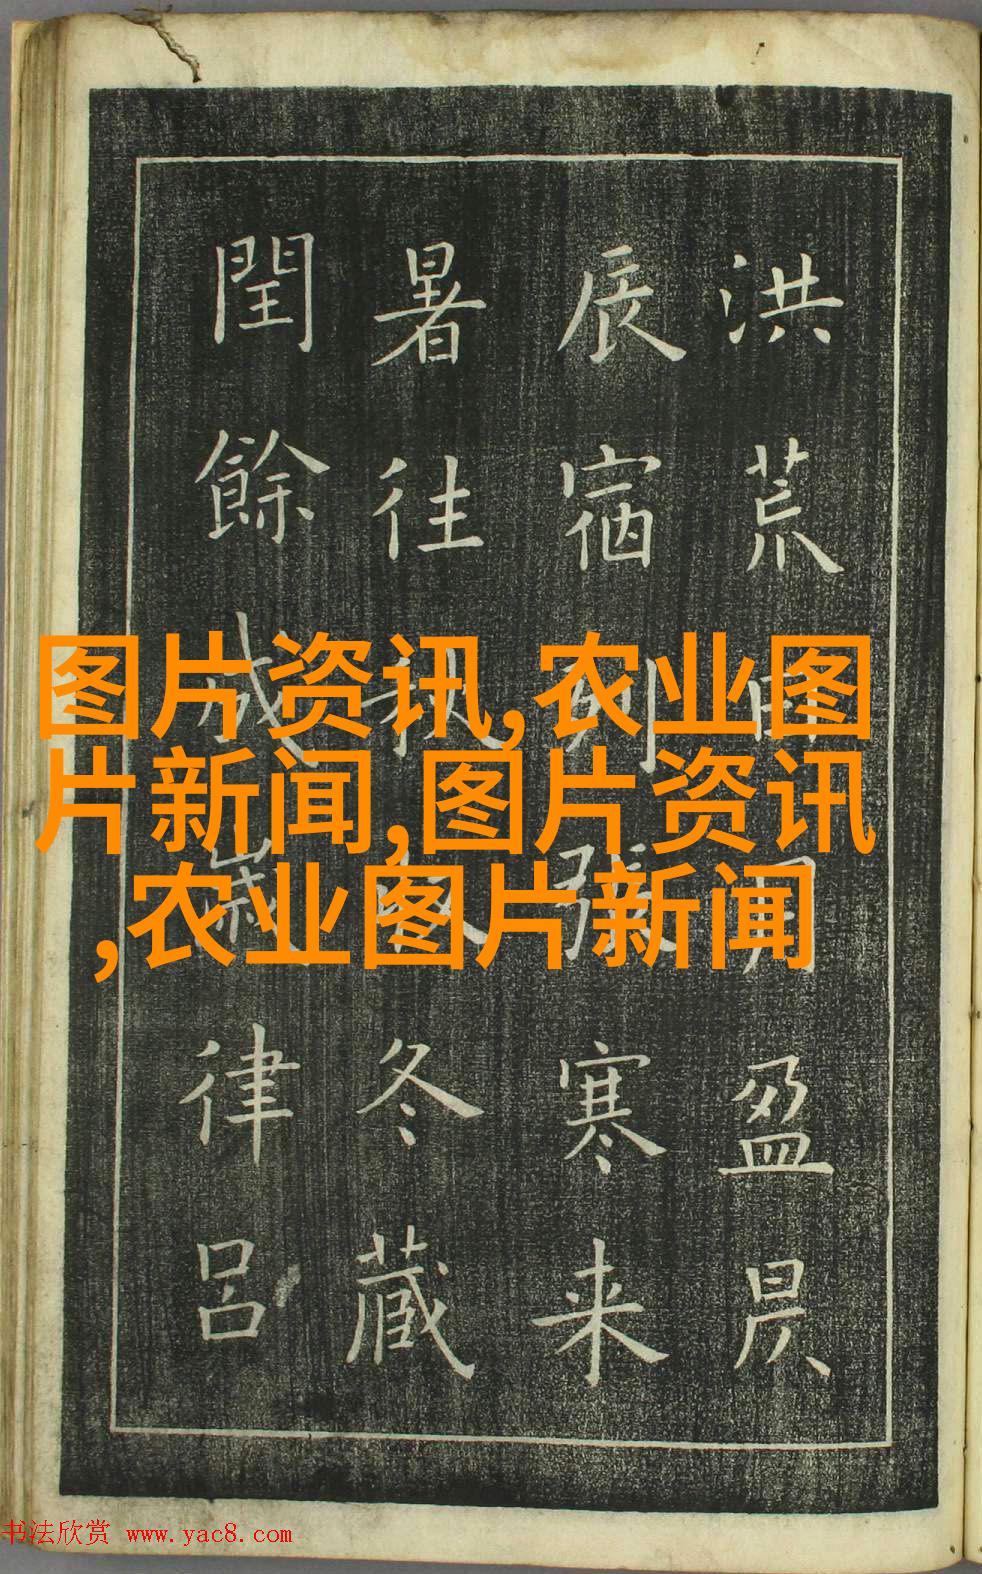 洪荒日月盈昃
辰宿列張寒来
暑往秋收冬藏
閏餘成歲律呂
图片资讯,农业图
片新闻,图片资讯
,农业图片新闻
书法欣赏 www.yac8.com